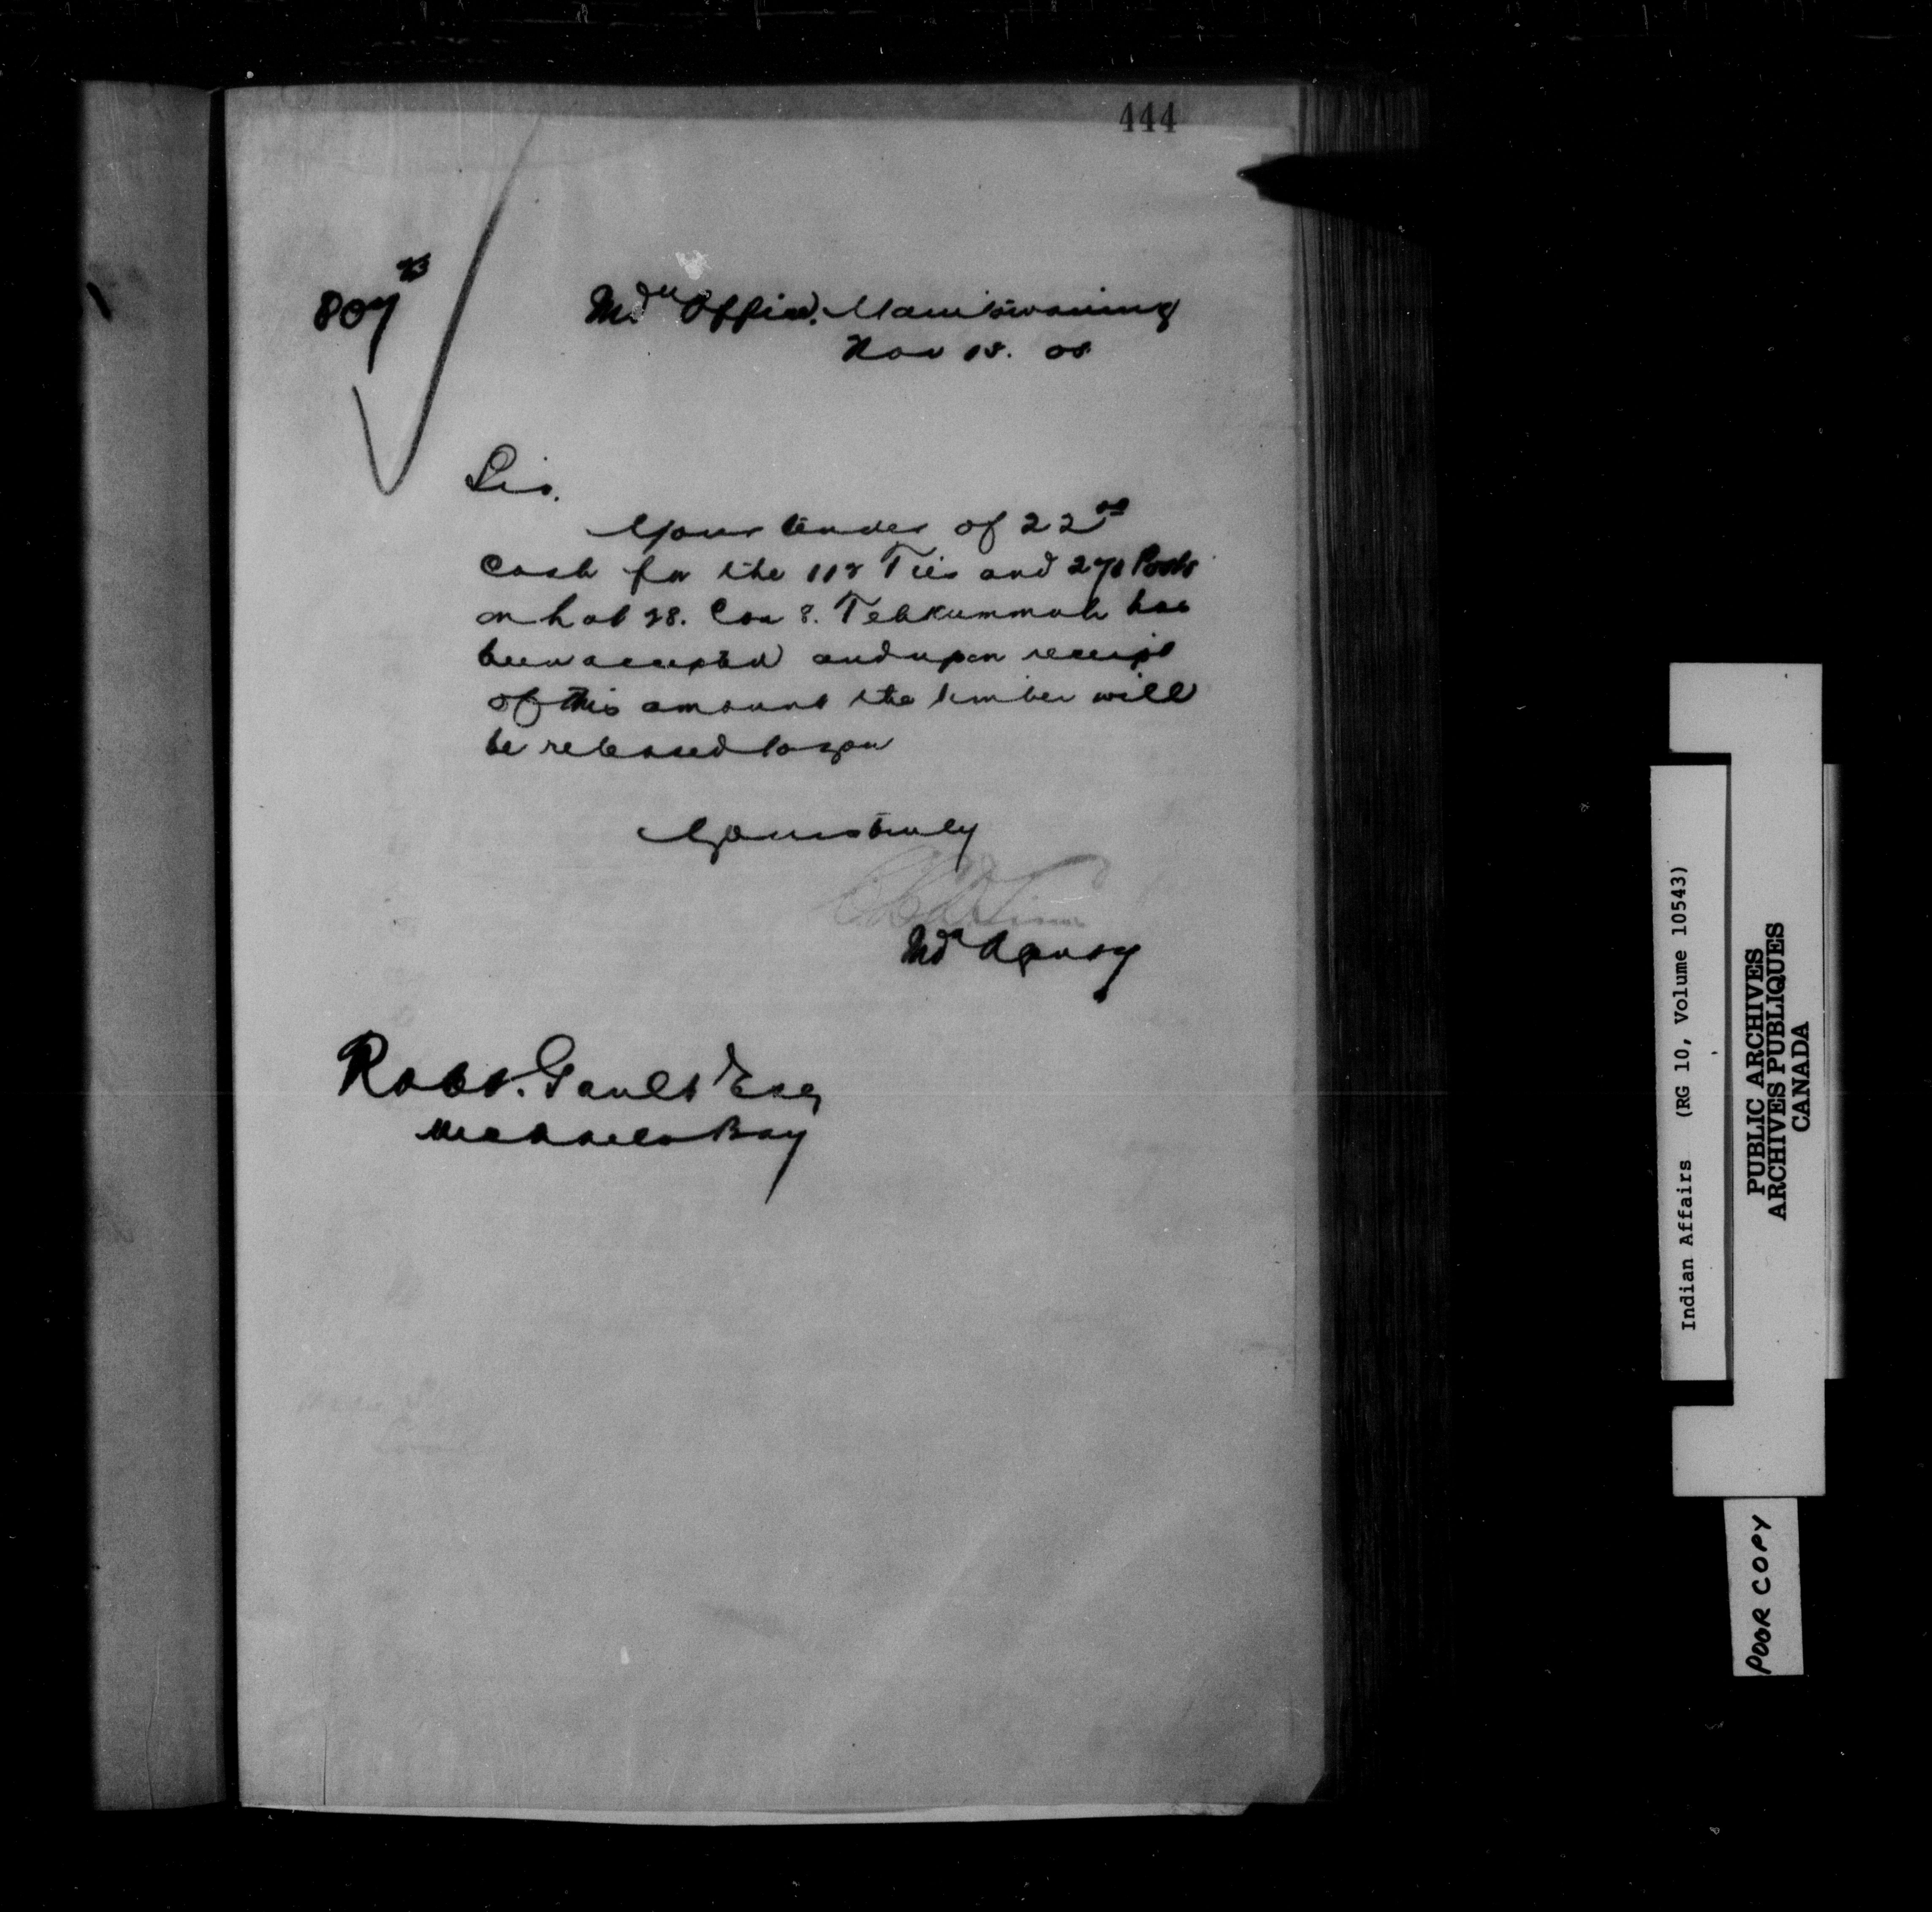 444
807
Ind Office. Manitowaning
Nov 18. 08
Sir.
Your tender of 22 00
Cash for the 118 Ties and 270 Posts
on Lot 28. Con 8. Tehkummah has
been accepted and upon receipt
of this amount the timber will
be released to you
Yours truly
Ind Agent
Robt. Gault Esq
Michaels Bay
Indian Affairs (RG 10, Volume 10543)
PUBLIC ARCHIVES
ARCHIVES PUBLIQUES
CANADA
POOR COPY